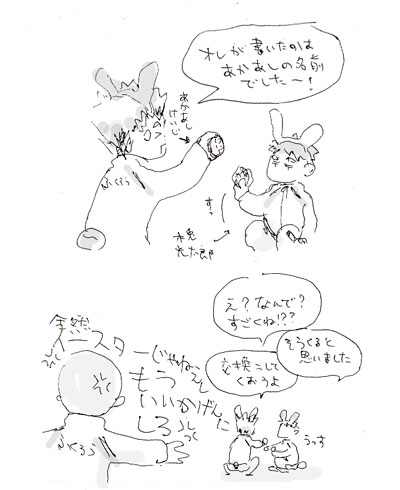 オレが書いたのは
あかあしの名前
でしたー!
あかあし
けいじ
ふくろう
すっ
木兎
光太郎
え?なんで?
すごくね!??
そうくると
思いました
交換こして
くおうよ
うっす
全然
イースターじゃねぇぞ
もう
いいかげんに
しろ
ふくろう